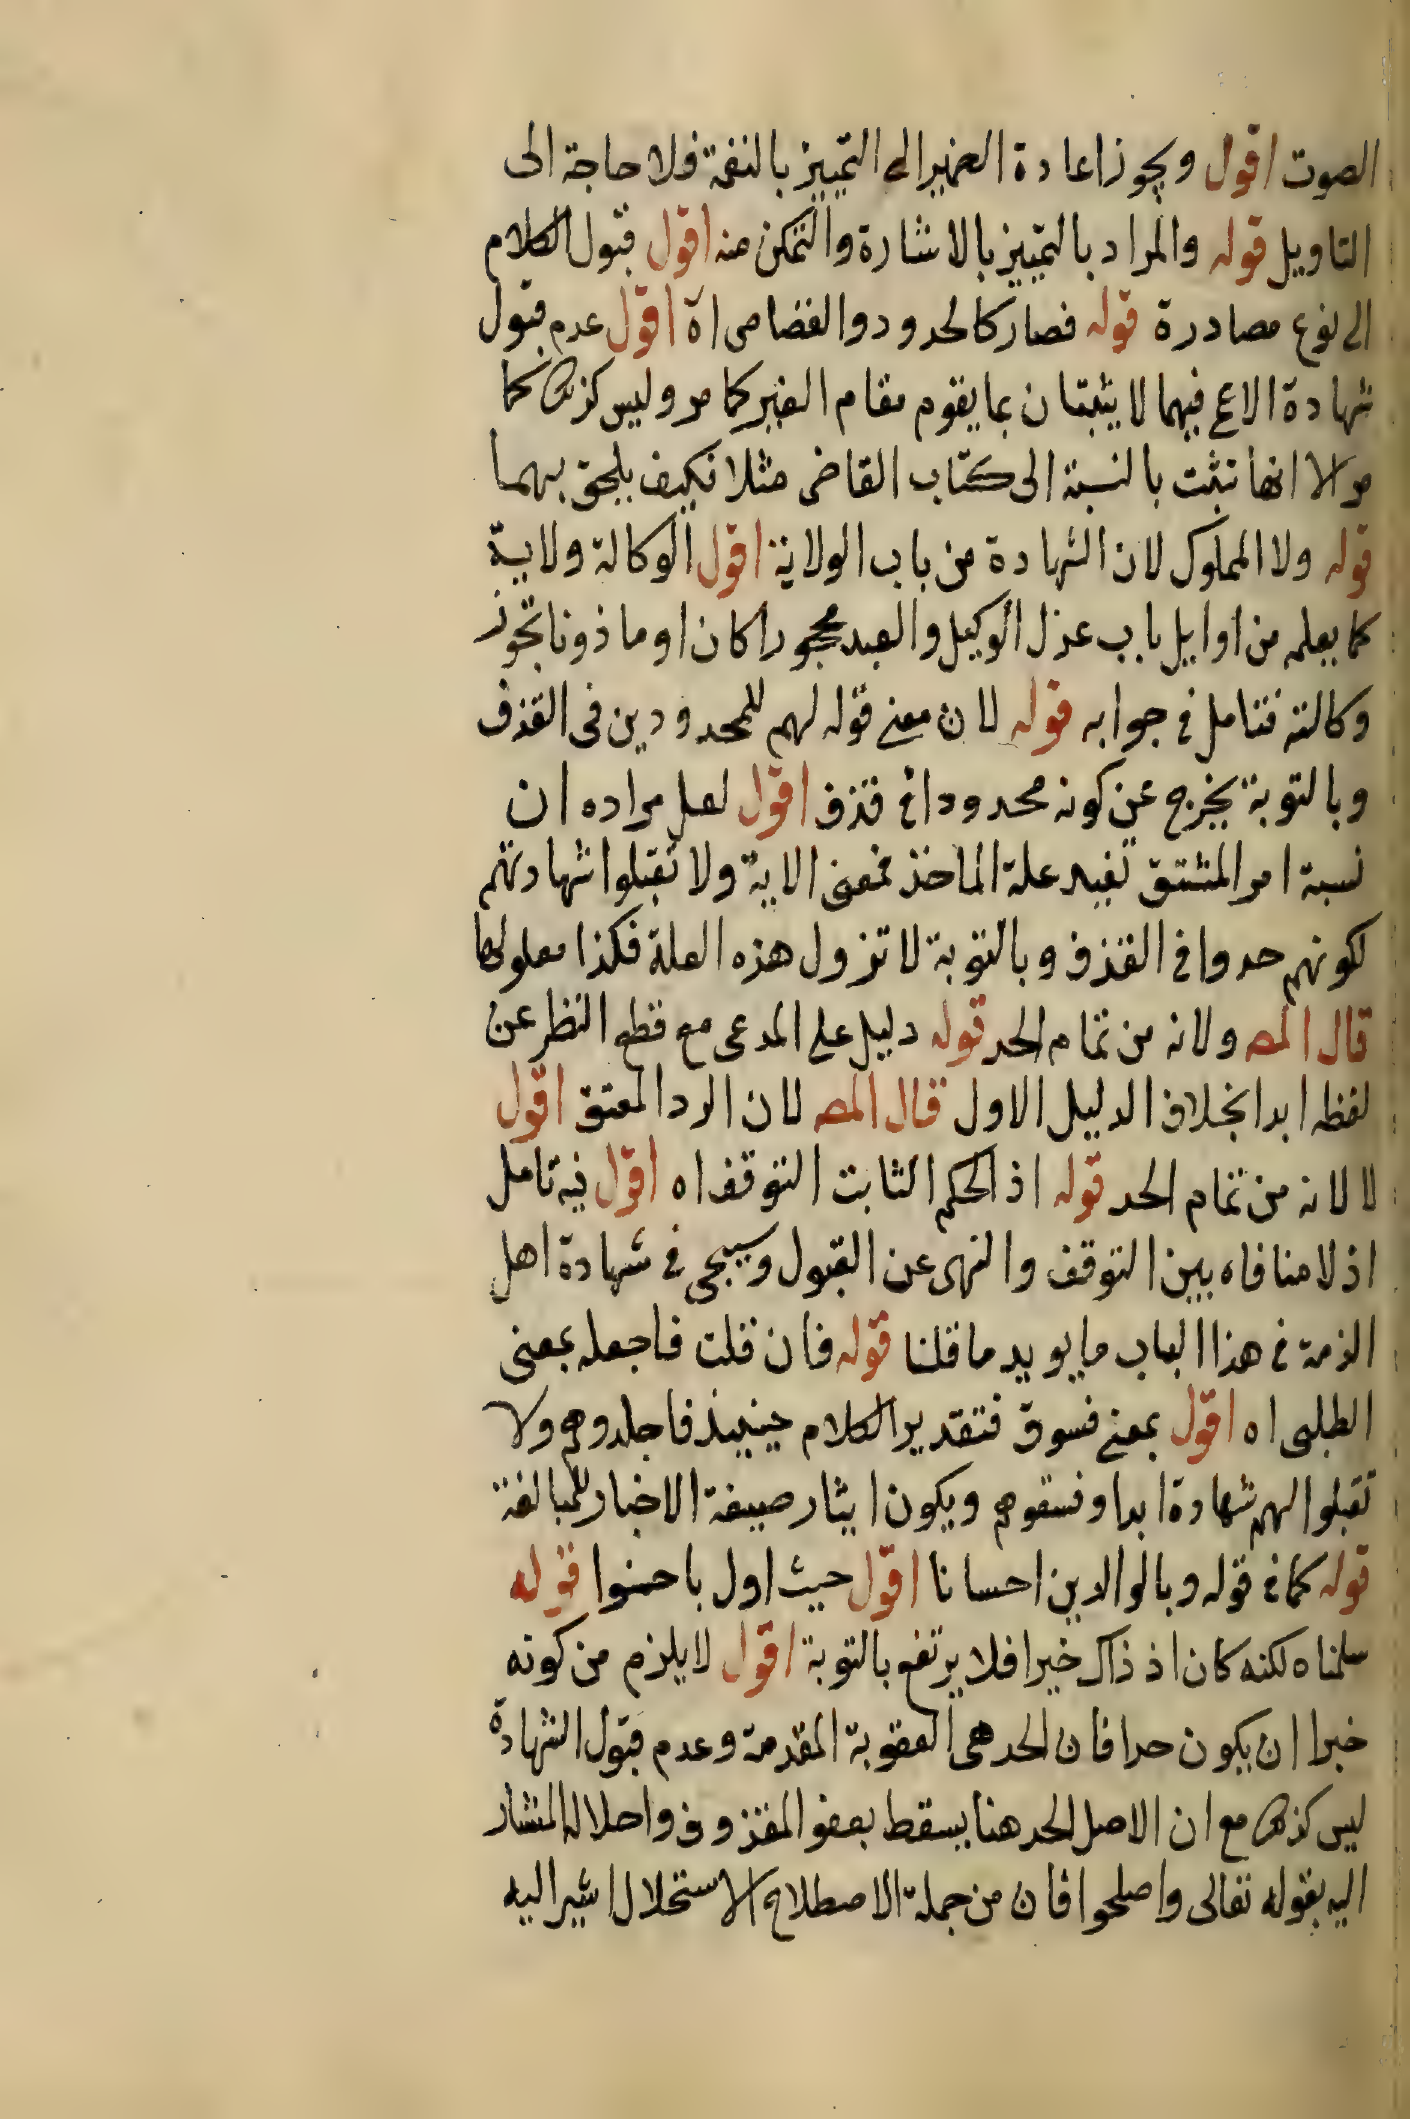 الصوت اقول ويجوز اعادة الضمير الى التمييز بالنغمة فلا حاجة الى
التاويل قوله والمراد بالتمييز بالاشارة والتمكن منه اقول قبول الكلام
الى نوع مصادرة قوله فصار كالحدود والقصاص اه اقول عدم قبول
شهادة الاعمى فيهما لا يثبتان بما يقوم مقام الغير كما مر وليس كذلك كما
مر الا انها تثبت بالنسبة الى كتاب القاضى مثلا فكيف يلحق بهما
قوله ولا المملوك لان الشهادة من باب الولاية اقول الوكالة ولاية
كما يعلم من اوايل باب عزل الوكيل والعبد محجورا كان او ماذونا تجوز
وكالته فتامل في جوابه قوله لان معنى قوله لهم للمحدودين فى القذف
وبالتوبة يخرج عن كونه محدودا في قذف اقول لعل مراده ان
نسبة امر المشتق تفيد علة الماخذ فمعنى الاية ولا تقبلوا شهادتهم
لكونهم حدوا في القذف وبالتوبة لا تزول هذه العلة فكذا معلولها
قال المص ولانه من تمام الحد قوله دليل على المدعى مع قطع النظر عن
لفظه ابدا بخلاف الدليل الاول قال المص لان الرد المعتق اقول
لا لانه من تمام الحد قوله اذ الحكم الثابت التوقف اه اقول فيه تامل
اذ لا منافاه بين التوقف والنهى عن القبول وسيجى في شهادة اهل
الذمة في هذا الباب ما يويد ما قلنا قوله فان قلت فاجعله بمعنى
الطلبى اه اقول بمعنى فسوق فتقدير الكلام حينيذ فاجلدوهم ولا
تقبلوا لهم شهادة ابدا وفسقوهم ويكون ايثار صيغة الاخبار للمبالغة
قوله كما في قوله وبالوالدين احسانا اقول حيث اول باحسنوا قوله
سلمناه لكنه كان اذ ذاك خبرا فلا يرتفع بالتوبة اقول لا يلزم من كونه
خبرا ان يكون حدا فان الحد هى العقوبة المقدمة وعدم قبول الشهادة
ليس كذلك مع ان الاصل الحد هنا يسقط بعفو المقذوف واحلاله المشار
اليه بقوله تعالى واصلحوا فان من جملة الاصطلاح الاستحلال اشير اليه